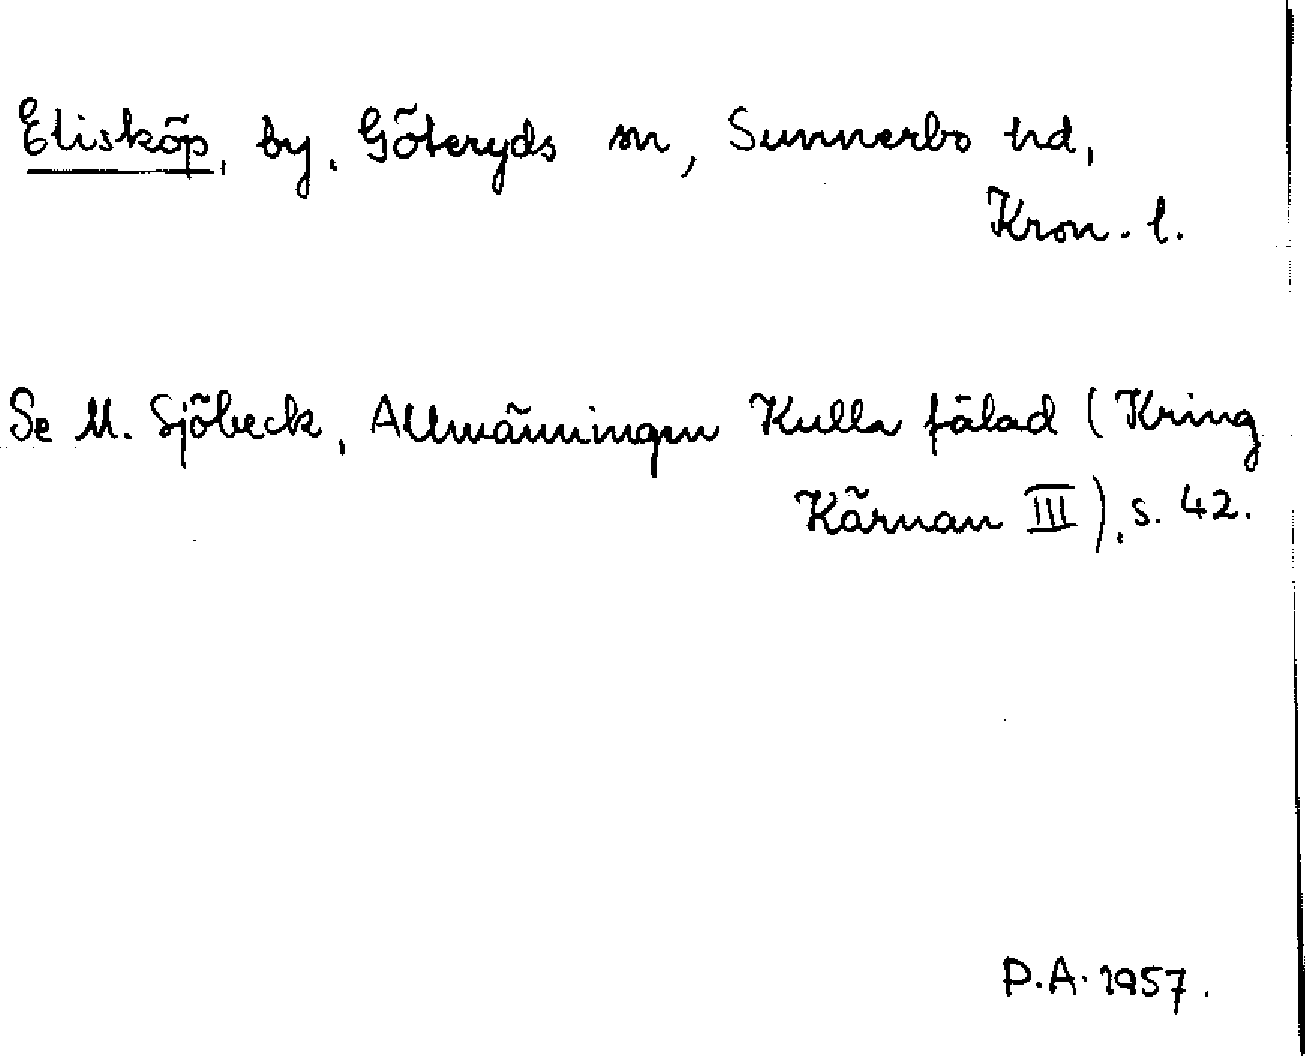 Elisköp, by, Göteryds sn, Sunnerbo hd,
Kron. l.
Se M. Sjöbeck, Allmänningen Kulla fälad (Kring
Kärnan III), s. 42.
P.A. 1957.